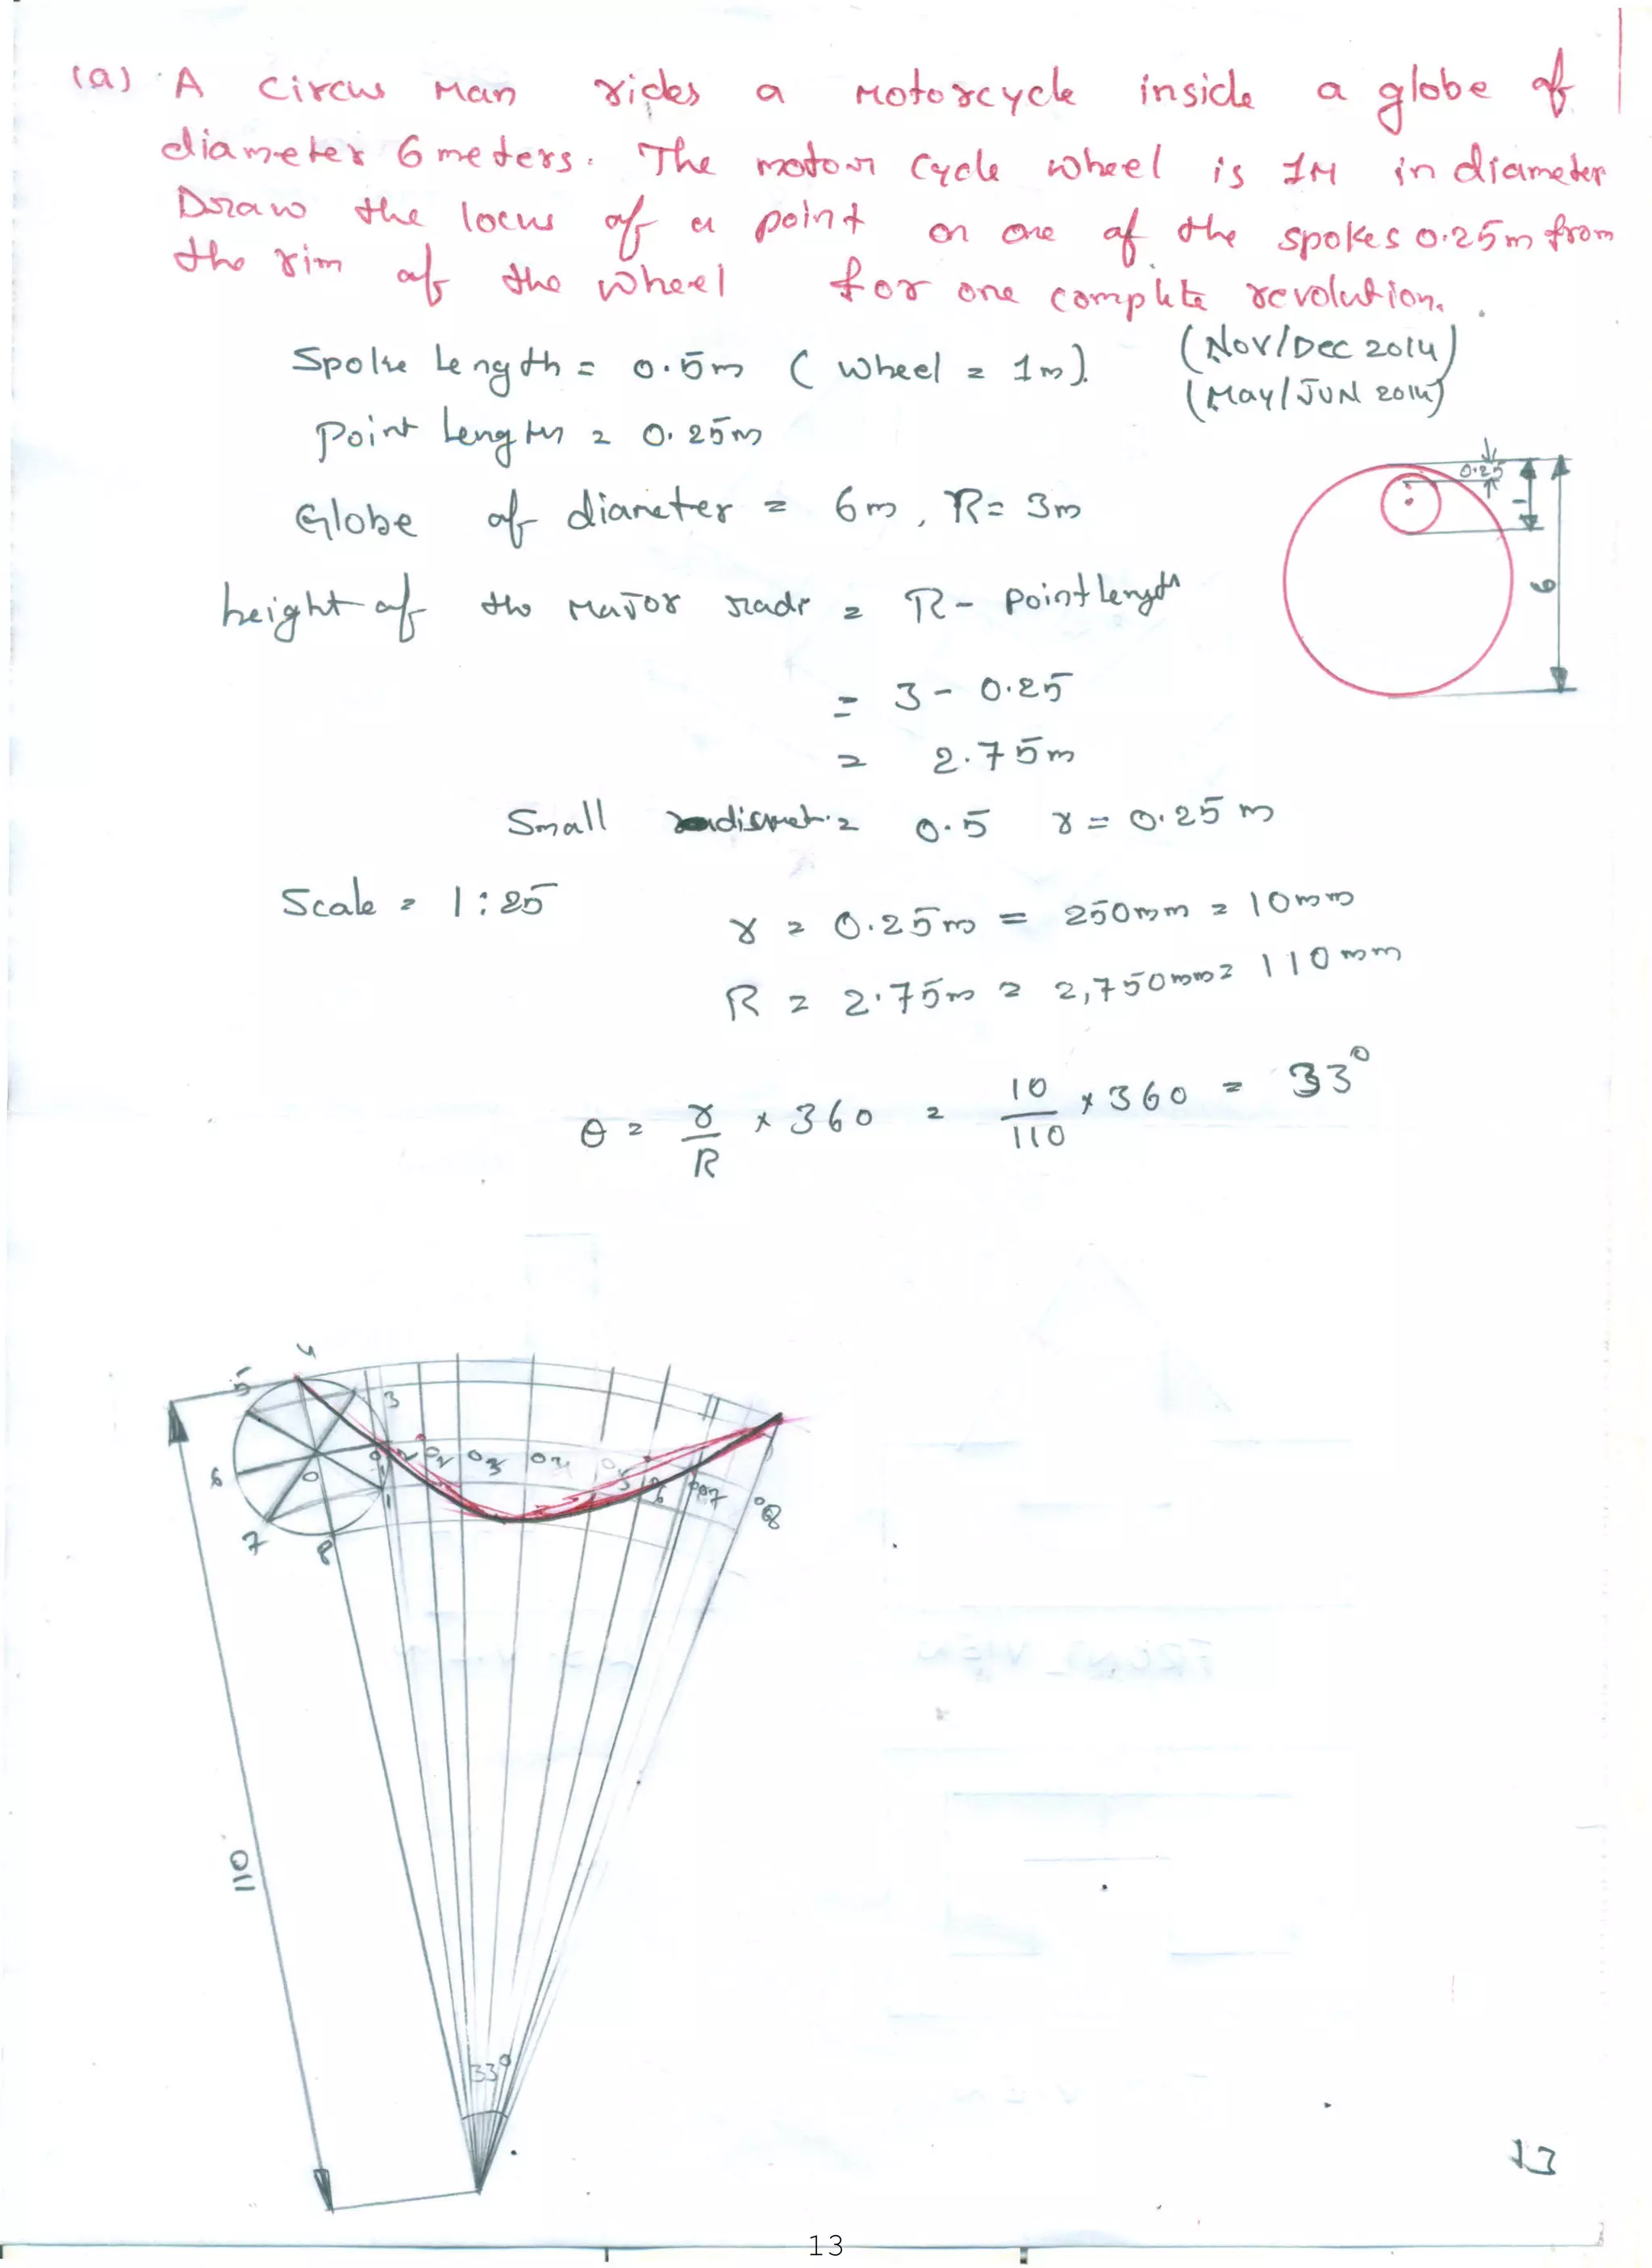 (a) A circus Man rides a Motorcycle inside a globe of
diameter 6 meters. The motor cycle wheel is 1M in diameter
Draw the locus of a point on one of the spokes 0.25m from
the rim of the wheel for one complete revolution.
(Nov/Dec 2014)
(May/JUN 2014)
Spoke Length = 0.5m ( wheel = 1m).
Point Length = 0.25m
Globe of diameter = 6m, R= 3m
0.25
1
6
height of the Major radi = R - Point Length
= 3 - 0.25
= 2.75m
Small = 0.5 r = 0.25 m
Scale = 1:25
r = 0.25m = 250mm = 10mm
R = 2.75m = 2,750mm = 110mm
θ = r/R × 360 = 10/110 × 360 = 33°
4
5
3
6
0
2
1
7
8
01 02 03 04 05 06 07 08
110
33°
13
13